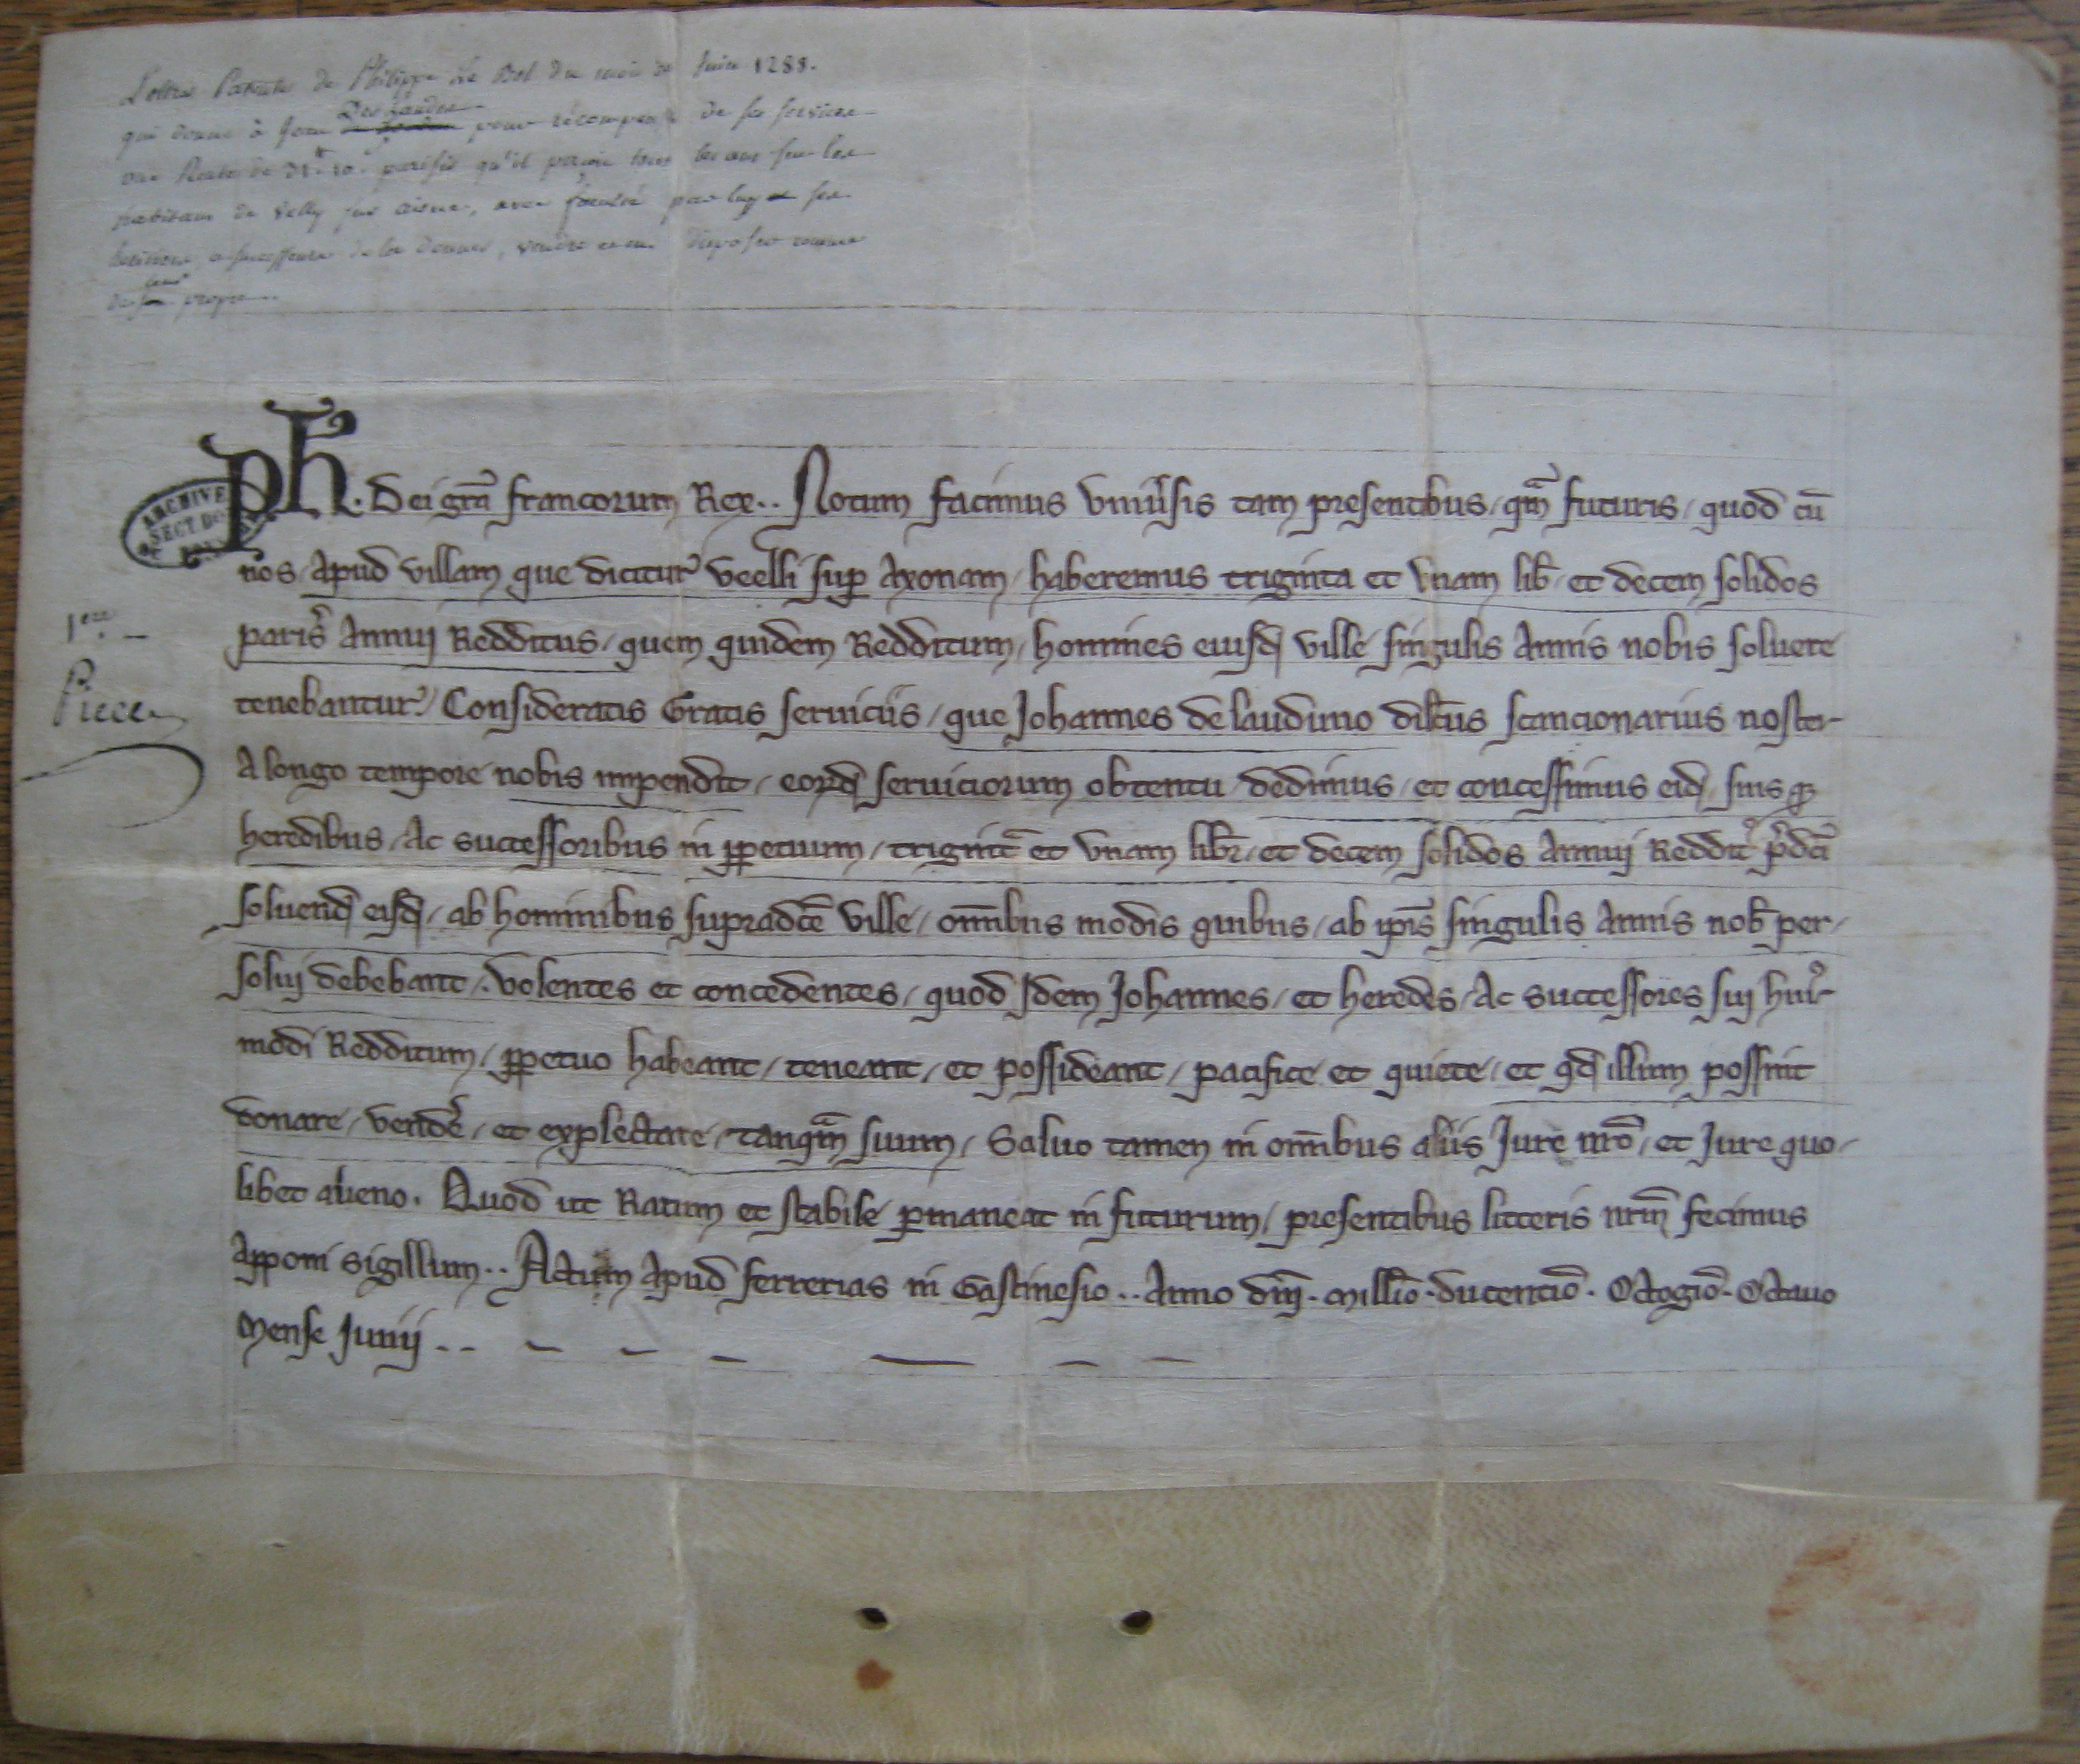 Lettres Patentes de Philippe Le Bel du mois de Juin 1288.
qui donne à Jean Des Landes pour récompense de ses services
une Rente de 31ᵗᵗ 10ˢ parisis qu'il percoit tous les ans sur les
habitans de Velly sur aisne, avec faculté par luy et ses
heritiers, et successeurs de la donner, vendre et en disposer comme
de leur propre
ARCHIVES
SECT DOM
1ere
Piece
Ph. Dei gr̃a francorum Rex.. Notum facimus vniu̾sis tam presentibus / qm̃ futuris / quod cũ
nos / apud villam que dicitur veelli suꝑ Axonam / haberemus triginta et vnam lib̃ / et decem solidos
paris̾ Annuj Redditus / quem quidem Redditum / homines eiusdꝫ ville singulis Annis nobis soluere
tenebantur. / Consideratis Gratis seruiciis / que Johannes de lauduno dilc̃us scancionarius noster
A longo tempore nobis impendit / eoꝝdꝫ seruiciorum obtentu dedimus / et concessimus eidꝫ / suisqꝫ
heredibus / Ac successoribus in ꝑpetuum / trigint̃ et vnam libr̃ / et decem solidos Annuj Reddit̾ p̾dc̃i
soluendꝫ eisdꝫ / ab hominibus supradc̃e ville / om̃ibus modis quibus / ab ip̃is singulis Annis nob̃ per-
solui debebant / . volentes et concedentes / quod Idem Johannes / et heredes / Ac successores sui hui̾-
modi Redditum / ꝑpetuo habeant / teneant / et possideant / pacifice et quiete / et qdꝫ illum possint
donare / vender̾ / et explectare / tanqm̃ suum / Saluo tamen in om̃ibus aliis Jure nr̃o / et Jure quo-
libet alieno. Quod ut Ratum et stabile ꝑmaneat in futurum / presentibus litteris nr̃m fecimus
Apponi sigillum.. Actum Apud ferrerias in Gastinesio.. Anno dñi. Mill̃io. ducentiõ. Octogiõ. Octauo
Mense Junij..